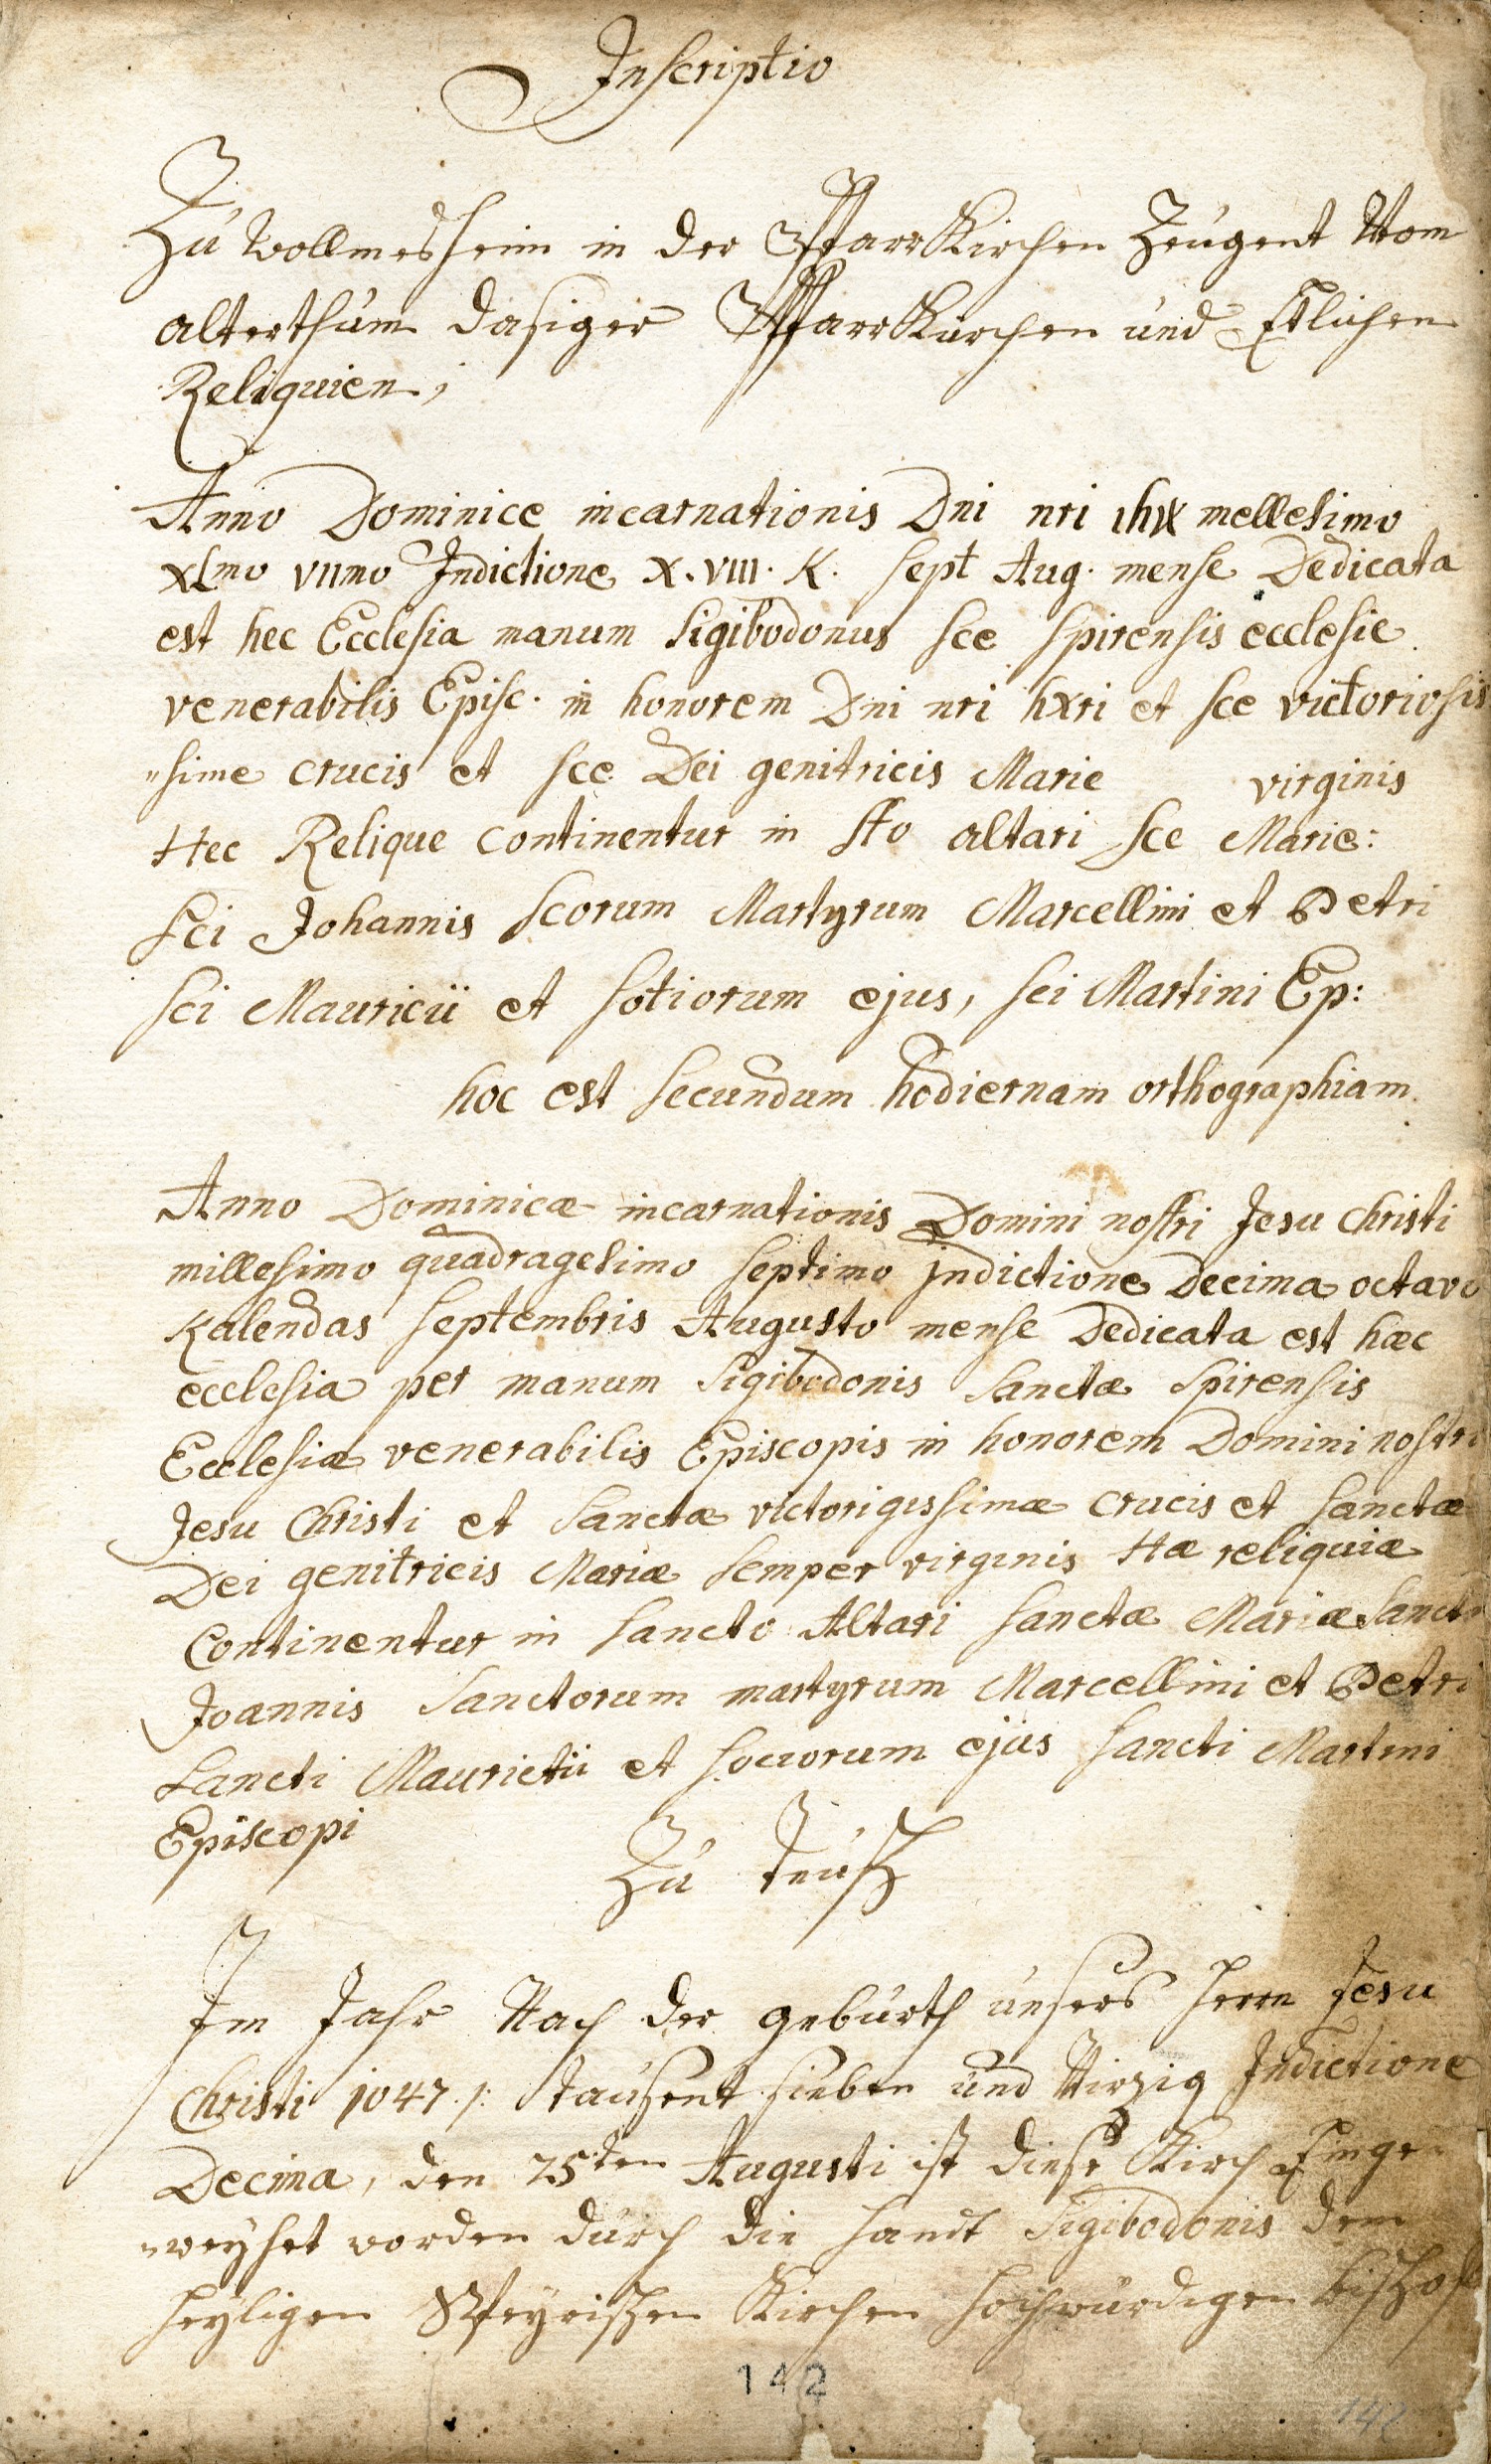 Inscriptio
Zu Wollmesheim in der PfarrKirchen Zeugent Vom
alterthum dasiger PfarrKürchen und Etlichen
Reliquien;
Anno Dominice incarnationis Dni nri ihx mellesimo
xLmo VIImo Indictione X. VIII. K. sept Aug. mense Dedicata
est hec Ecclesia manum Sigibodonus sce spirensis ecclesie
venerabilis Episc. in honorem Dni nri hxri et sce victoriosis
"sime crucis et sce Dei genitricis Marie virginis
Hec Relique continentur in sto altari sce Marie:
sci Johannis scorum Martyrum Marcellini et Petri
sci Mauricii et sotiorum ejus, sci Martini Ep:
hoc est secundum hodiernam orthographiam
Anno Dominicæ incarnationis Domini nostri Jesu Christi
millesimo quadragesimo septimo jndictione Decima octavo
Kalendas septembris Augusto mense Dedicata est hæc
ecclesia per manum Sigibodonis sanctæ spirensis
Ecclesiæ venerabilis Episcopis in honorem Domini nostri
Jesu Christi et sanctæ victorigissimæ crucis et sanctæ
Dei genitricis Mariæ semper virginis Hæ reliquiæ
Continentur in sancto Altari sanctæ Mariæ sancti
Joannis sanctorum martyrum Marcellini et Petri
Sancti Maurictii et sociorum ejus sancti Martini
Episcopi
Zu Teutsch
Im Jahr Nach der geburth unsers Herrn Jesu
Christi 1047 /: tausent sieben und Virzig Indictione
Decima, den 25ten Augusti ist diese Kirch Einge-
"weyhet worden durch die handt Sigibodonis dem
heyligen Speyrischen Kirchen hochwürdigen bischof
142
142